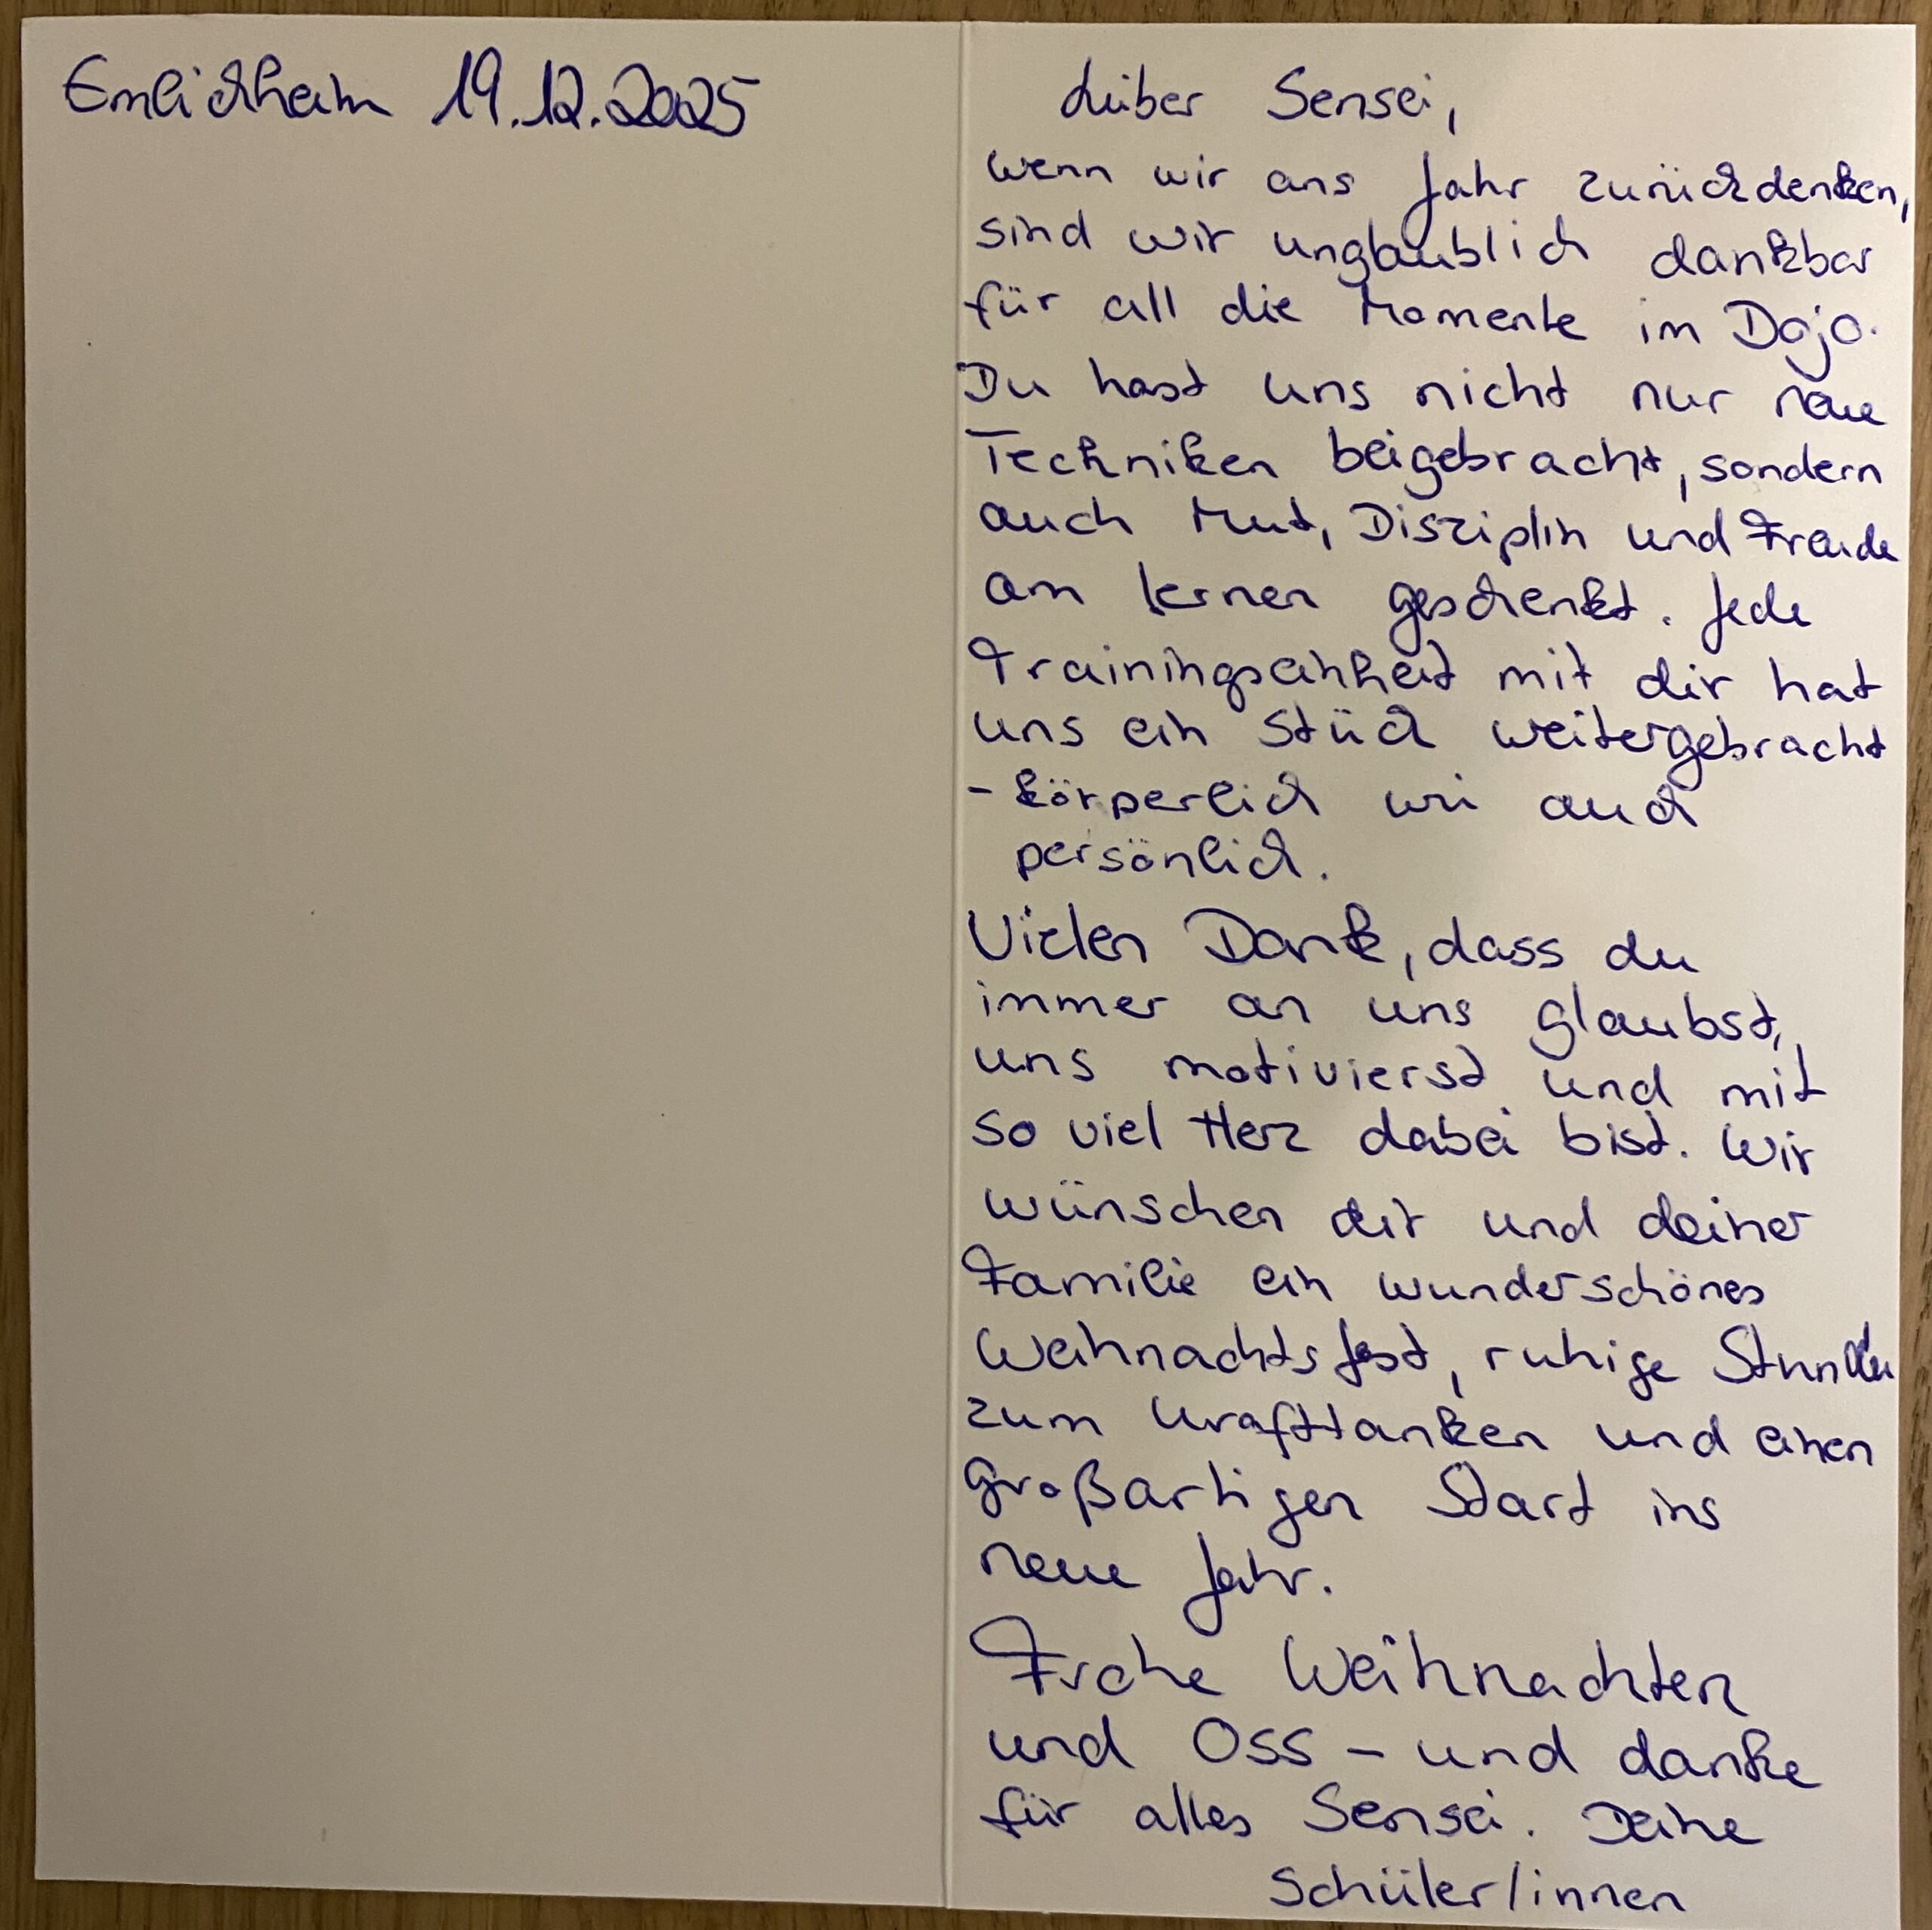 Emlichheim 19.12.2025
Lieber Sensei,
wenn wir ans Jahr zurückdenken,
sind wir unglaublich dankbar
für all die Momente im Dojo.
Du hast uns nicht nur neue
Techniken beigebracht, sondern
auch Mut, Disziplin und Freude
am lernen geschenkt. Jede
Trainingseinheit mit dir hat
uns ein Stück weitergebracht
- körperlich wie auch
persönlich.
Vielen Dank, dass du
immer an uns glaubst,
uns motivierst und mit
so viel Herz dabei bist. Wir
wünschen dir und deiner
Familie ein wunderschönes
Weihnachtsfest, ruhige Stunden
zum Krafttanken und einen
großartigen Start ins
neue Jahr.
Frohe Weihnachten
und Oss - und danke
für alles Sensei. Deine
Schüler/innen